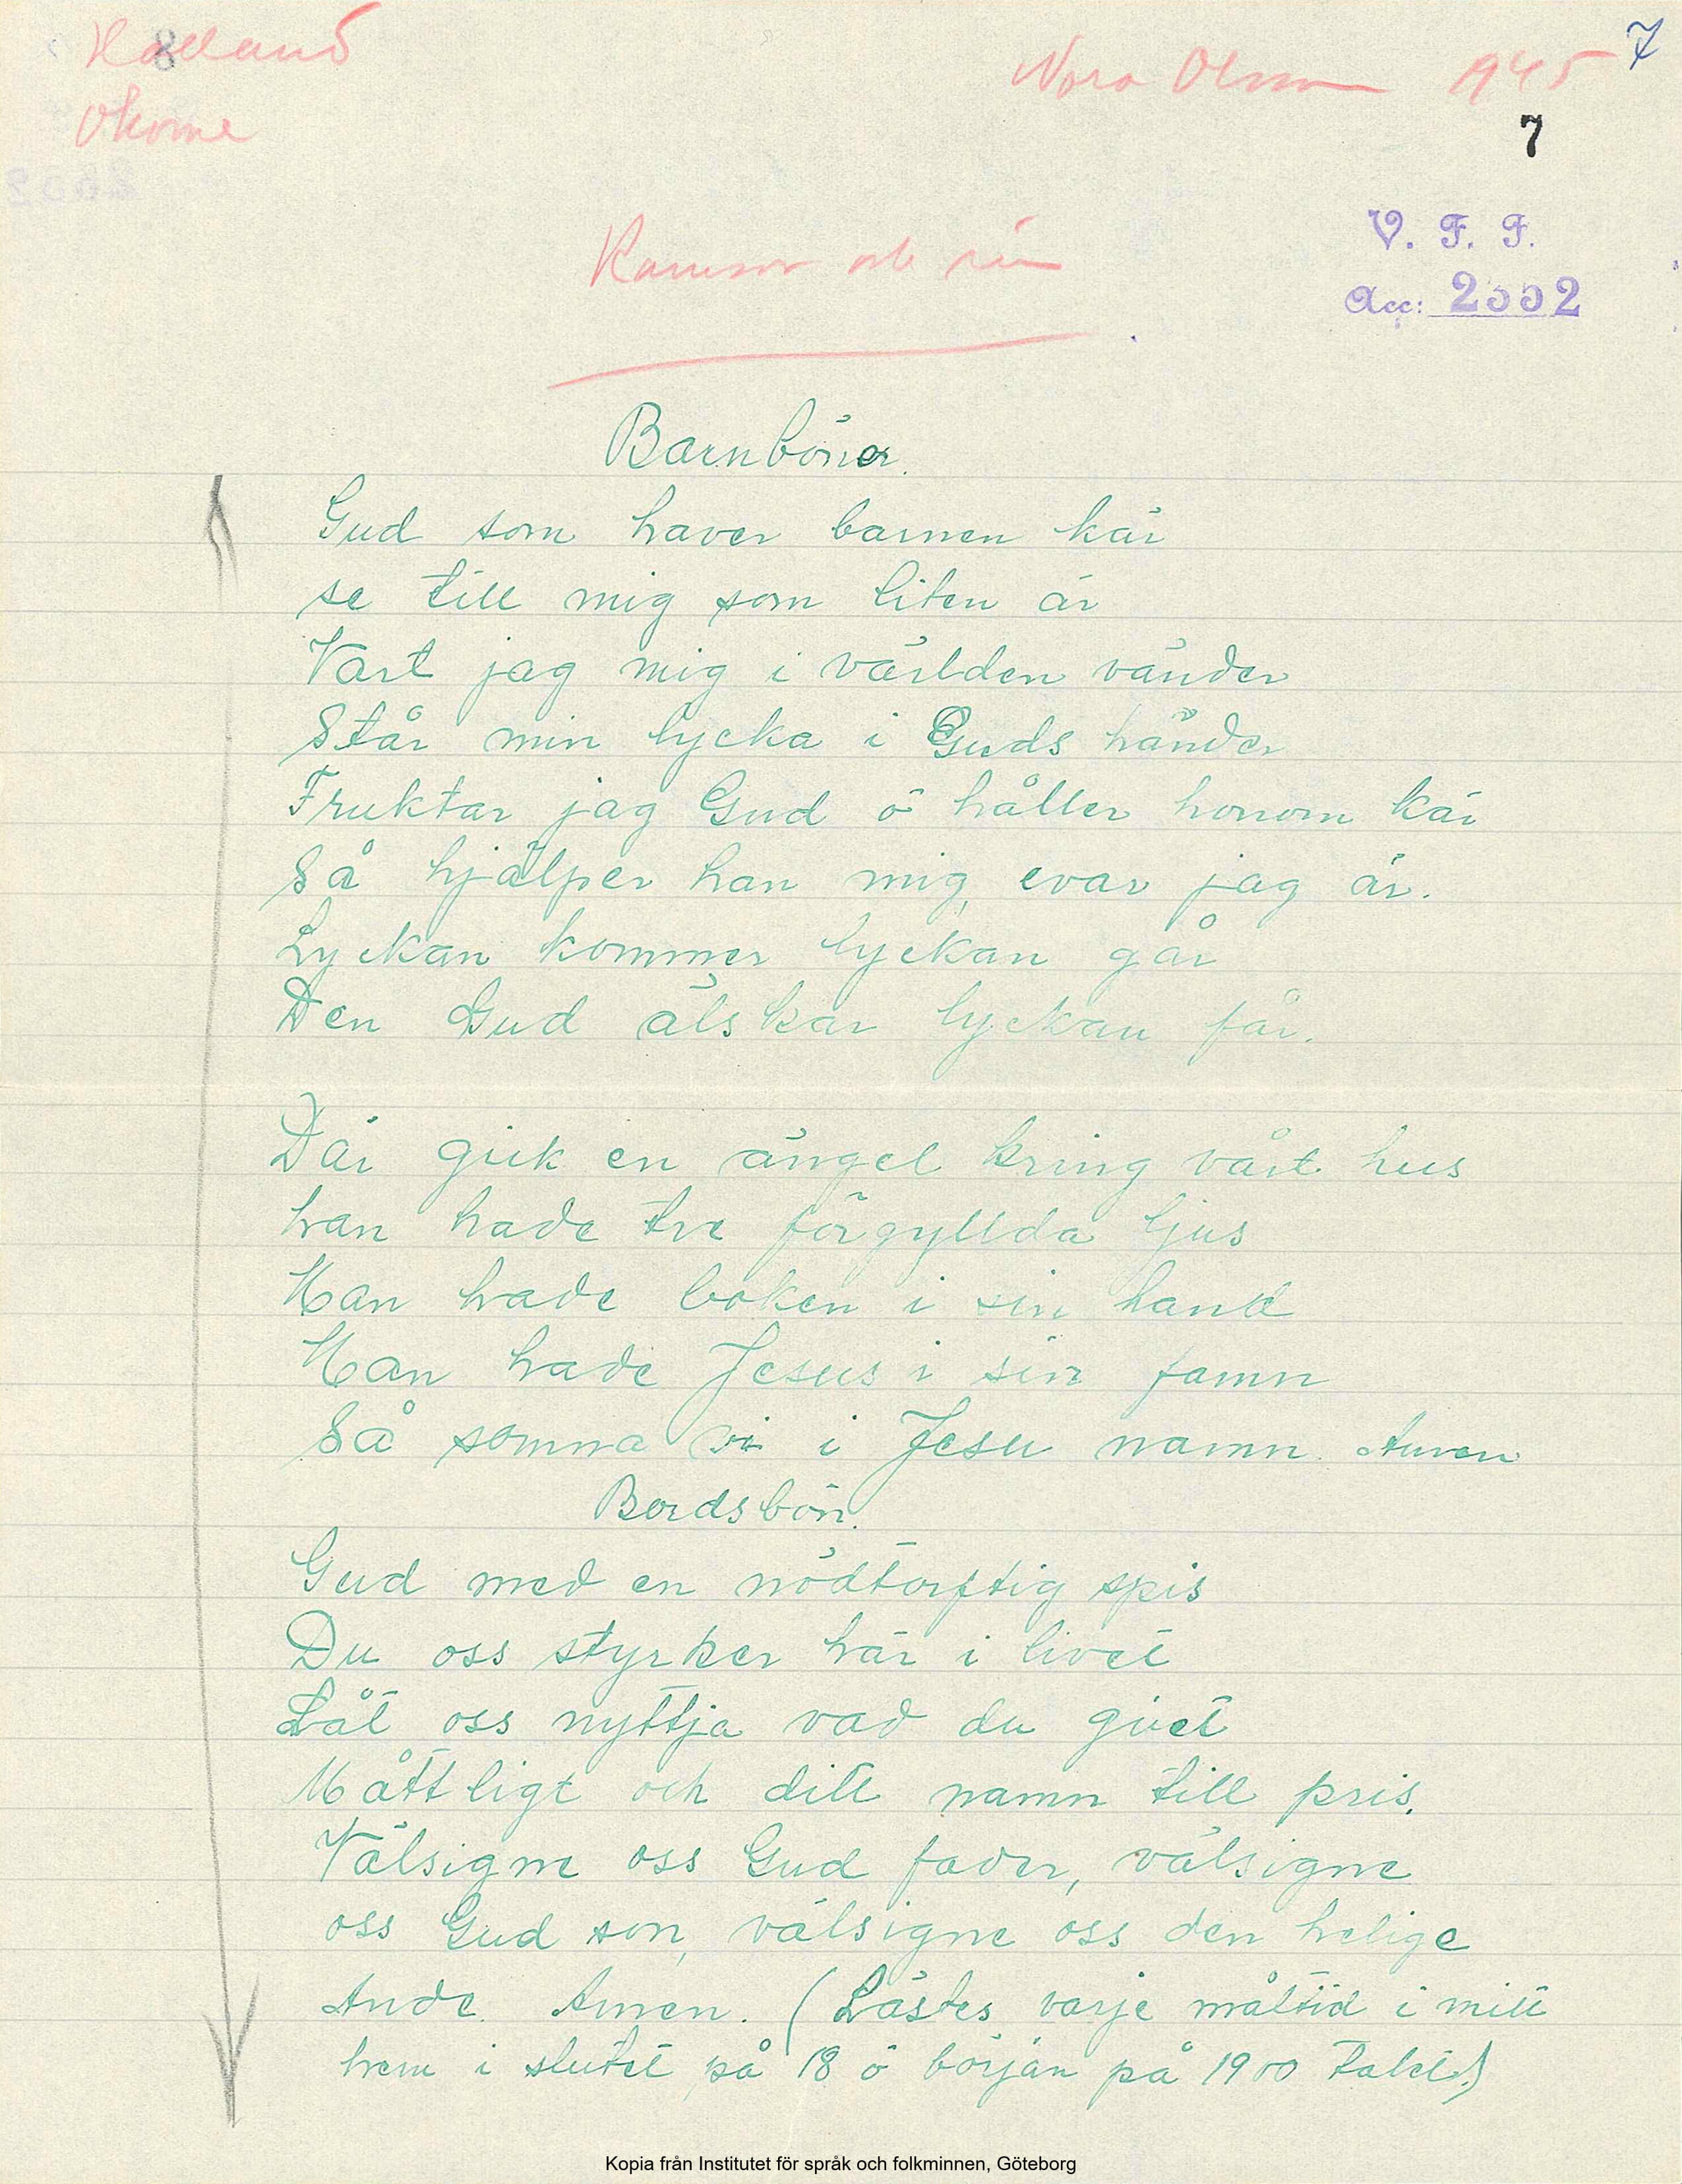 Halland
8
Okome
Nora Olsson 1945
7
7
V. F. F.
Acc: 2552
Ramsor och rim
Barnböner.
Gud som haver barnen kär
se till mig som liten är
Vart jag mig i världen vänder
Står min lycka i Guds händer
Fruktar jag Gud ö håller honom kär
Så hjälper han mig, evar jag är.
Lyckan kommer lyckan går
Den Gud älskar lyckan får.
Där gick en ängel kring vårt hus
han hade tre förgyllda ljus
Han hade boken i sin hand
Han hade Jesus i sin famn
Så somna vi i Jesu namn. Amen
Bordsbön.
Gud med en nödtörftig spis
Du oss styrker här i livet
Låt oss nyttja vad du givet
Måttligt och ditt namn till pris.
Välsigne oss Gud fader, välsigne
oss Gud son, välsigne oss den helige
Ande. Amen. (Lästes varje måltid i mitt
hem i slutet på 18 ö början på 1900 talet.)
Kopia från Institutet för språk och folkminnen, Göteborg